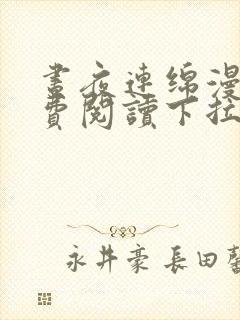 晝夜連綿漫
費閱讀下拉
永井豪 長田馨